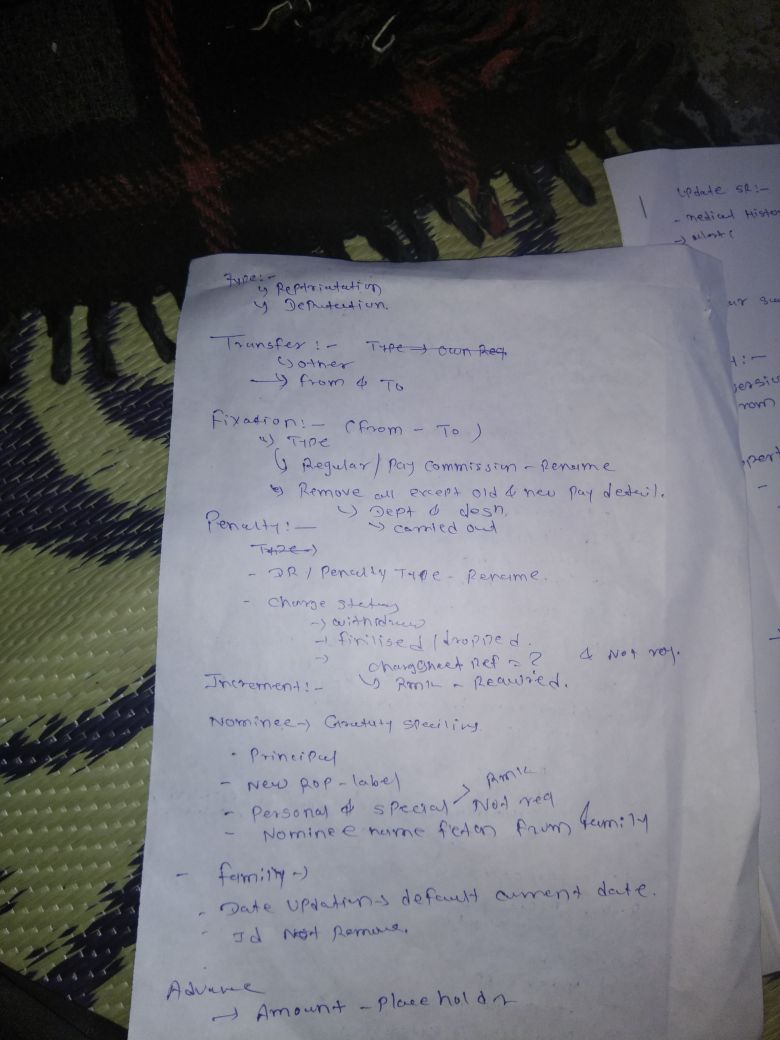 Type:-
↳ Reptriatation
↳ Deputation.
Transfer :- Type → own Req
↳ other
→ from & To
Fixation:- (from - To)
↳ Type
↳ Regular / Pay commission - Rename
↳ Remove all except old & new Pay detail.
↳ Dept & desn.
Penalty:- ↳ carried out
Type→
- DR / Penalty Type - Rename.
- Charge status
→ withdraw
→ finilised / dropped.
→ chargesheet Ref = ? & Not req.
Increment:- ↳ Rmk - Required.
Nominee→ Gratuty
• Principal
- New ROP - label
- Personal & special > Rmk Not req
- Nominee name from family
- family→
- Date Updation→ default current date.
- Id Not Remove.
Advance
→ Amount - Place holdr
Update SR:-
- medical Histo
→